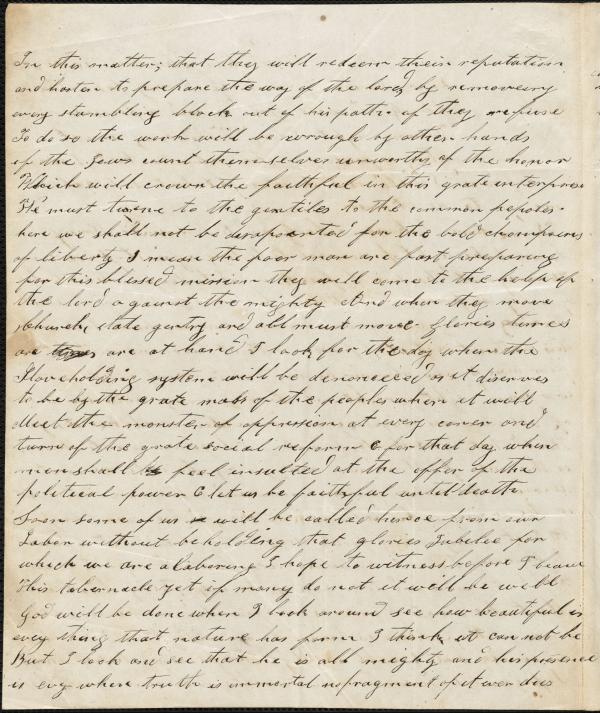 In this matter; that they will redeem their reputation
and hasten to prepare the way of the lord, by removeing
every stumbling block out of his path. if they refuse
To do so the work will be wrough by other hands
if the Jews count themselves unworthy of the honor
Which will crown the faithful in this grate enterprise
We must turne to the gentiles to the common peoples.
here we shall not be disapointed for the bold champions
of liberty I mean the poor man are fast prepairing
for this blessed mission they will come to the help of
the lord against the mighty And when they move
Church, state gentry and all must move. Glories times
are are at hand I look for the day when the
Slaveholding system will be denounced as it diserves
to be by the grate mass of the peoples when it will
Meet the monster of oppression at every corner and
turn of the grate social reform & for that day when
men shall feel insulted at the offer of the
political power & let us be faithful until death
Soon some of us will be called hence from our
Labor without beholding that glories Jubilee for
which we are alaboring I hope to witness before I leave
This tabernacle yet if many do not it will be well
God will be done when I look around see how beautiful is
evry thing that nature has form I think it can not be
But I look and see that he is all mighty and his presence
is evry where truth is immortal no fragment of it ever dies